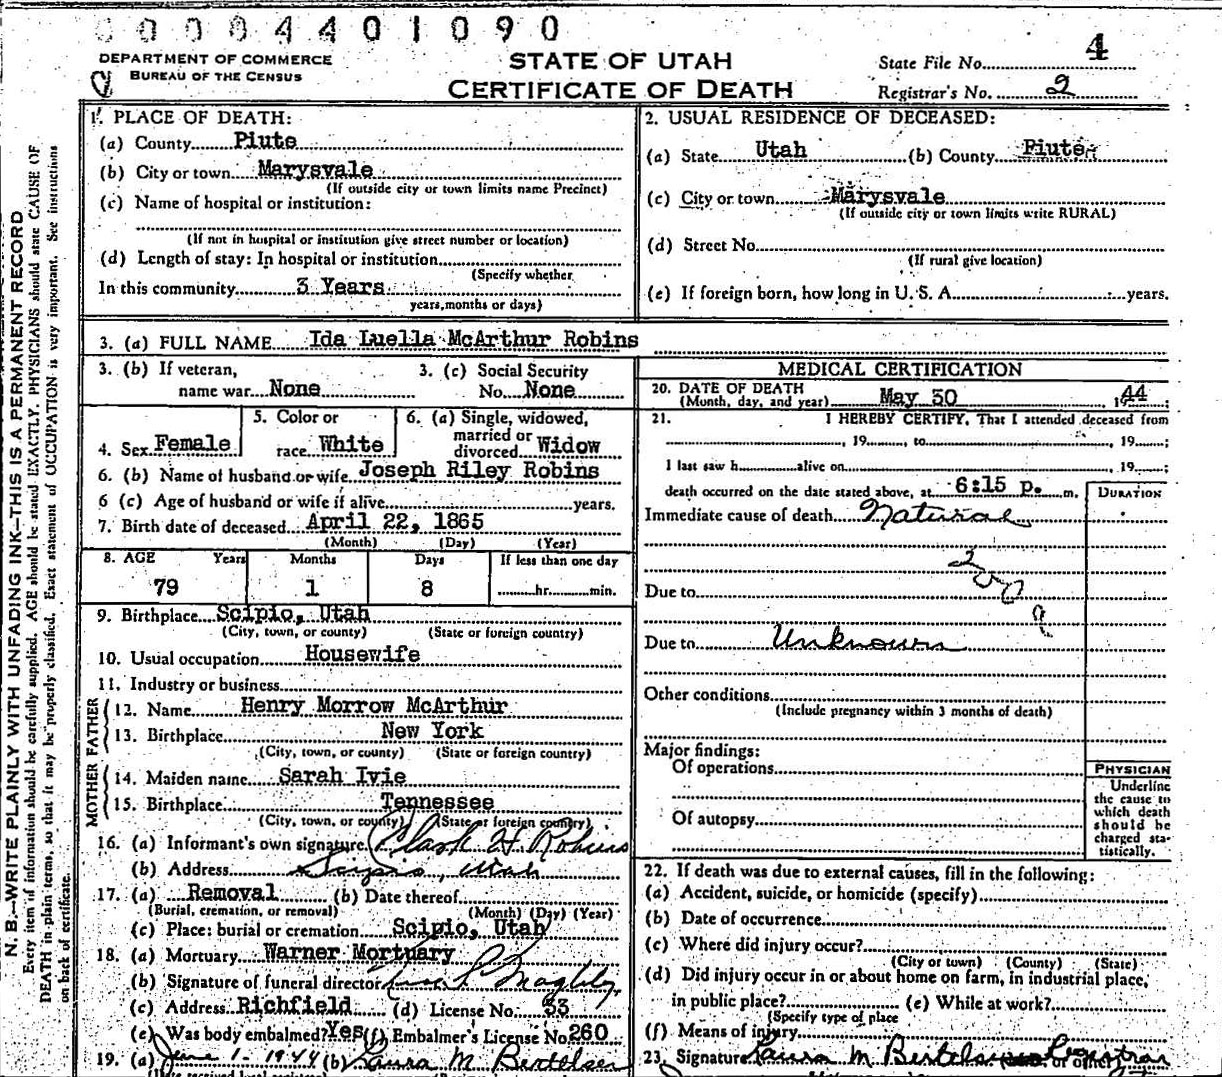 00004401090
DEPARTMENT OF COMMERCE
BUREAU OF THE CENSUS
STATE OF UTAH
CERTIFICATE OF DEATH
State File No. 4
Registrar's No. 2
N. B.—WRITE PLAINLY WITH UNFADING INK—THIS IS A PERMANENT RECORD
Every item of information should be carefully supplied. AGE should be stated EXACTLY. PHYSICIANS should state CAUSE OF
DEATH in plain terms, so that it may be properly classified. Exact statement of OCCUPATION is very important. See instructions
on back of certificate.
1. PLACE OF DEATH:
(a) County Piute
(b) City or town Marysvale
(If outside city or town limits name Precinct)
(c) Name of hospital or institution:
(If not in hospital or institution give street number or location)
(d) Length of stay: In hospital or institution
(Specify whether
In this community 3 Years
years, months or days)
2. USUAL RESIDENCE OF DECEASED:
(a) State Utah (b) County Piute
(c) City or town Marysvale
(If outside city or town limits write RURAL)
(d) Street No.
(If rural give location)
(e) If foreign born, how long in U. S. A. years.
3. (a) FULL NAME Ida Luella McArthur Robins
3. (b) If veteran, 3. (c) Social Security
name war None No. None
4. Sex Female 5. Color or race White 6. (a) Single, widowed, married or divorced Widow
6. (b) Name of husband or wife Joseph Riley Robins
6 (c) Age of husband or wife if alive years.
7. Birth date of deceased April 22, 1865
(Month) (Day) (Year)
8. AGE Years Months Days If less than one day
79 1 8 hr. min.
9. Birthplace Scipio, Utah
(City, town, or county) (State or foreign country)
10. Usual occupation Housewife
11. Industry or business
FATHER
12. Name Henry Morrow McArthur
13. Birthplace New York
(City, town, or county) (State or foreign country)
MOTHER
14. Maiden name Sarah Ivie
15. Birthplace Tennessee
(City, town, or county) (State or foreign country)
16. (a) Informant's own signature Clark H Robins
(b) Address Scipio, Utah
17. (a) Removal (b) Date thereof
(Burial, cremation, or removal) (Month) (Day) (Year)
(c) Place: burial or cremation Scipio, Utah
18. (a) Mortuary Warner Mortuary
(b) Signature of funeral director
(c) Address Richfield (d) License No. 33
(e) Was body embalmed? Yes (f) Embalmer's License No. 260
19. (a) June 1-1944 (b) Laura M Bertelsen
MEDICAL CERTIFICATION
20. DATE OF DEATH
(Month, day, and year) May 30 1944;
21. I HEREBY CERTIFY, That I attended deceased from
, 19 , to , 19 ;
I last saw h alive on , 19 ;
death occurred on the date stated above, at 6:15 p. m.
DURATION
Immediate cause of death Natural
200
9
Due to
Due to Unknown
Other conditions
(Include pregnancy within 3 months of death)
Major findings:
Of operations
Of autopsy
PHYSICIAN
Underline
the cause to
which death
should be
charged sta-
tistically.
22. If death was due to external causes, fill in the following:
(a) Accident, suicide, or homicide (specify)
(b) Date of occurrence
(c) Where did injury occur?
(City or town) (County) (State)
(d) Did injury occur in or about home on farm, in industrial place,
in public place? (e) While at work?
(Specify type of place
(f) Means of injury
23. Signature Laura M Bertelsen Registrar or other